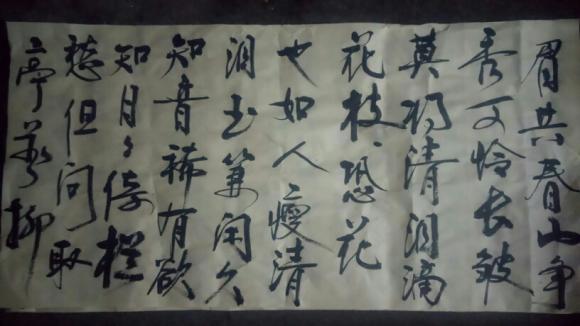 眉共春山争
秀可怜长皱
莫将清泪滴
花枝恐花
也如人瘦清
润玉箫闲久
知音稀有欲
知日々倚栏
愁但问取
亭前柳